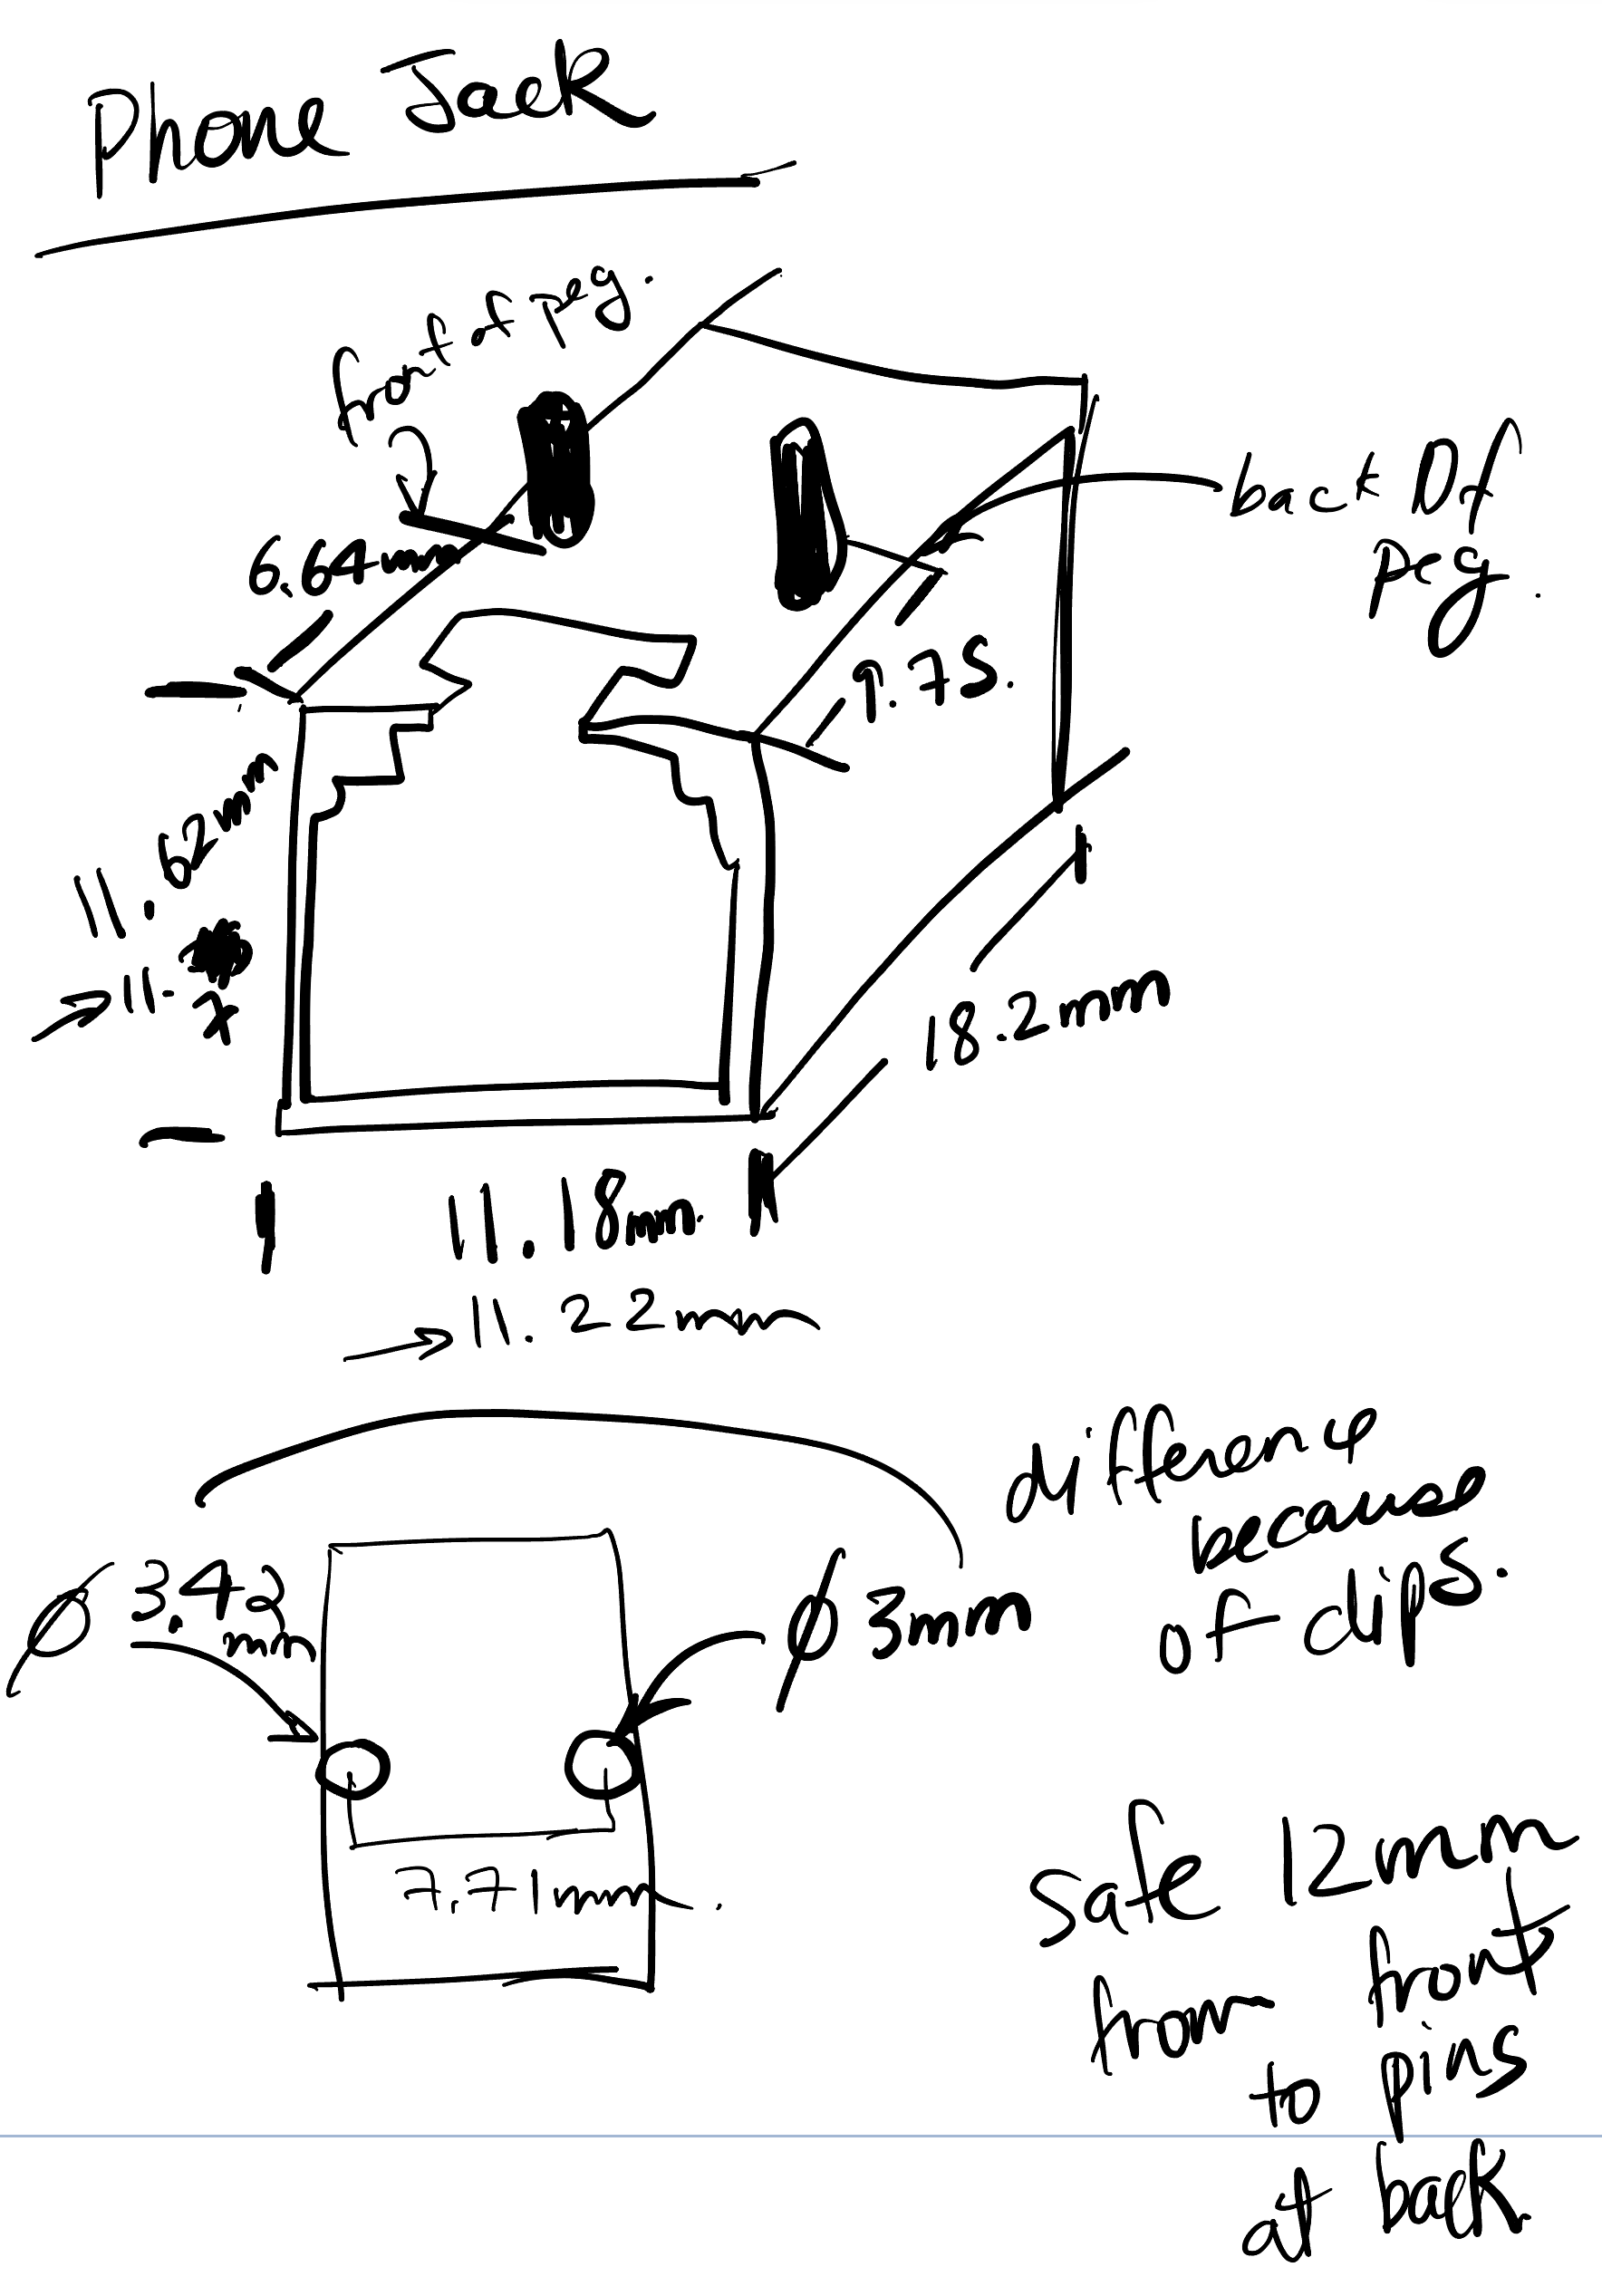 Phone Jack
front of peg.
back Of
peg.
6.64mm
9.75.
11.62mm
→ 11.7
18.2mm
11.18mm.
→ 11.22mm
difference
because
of clips.
Ø 3.42
mm
Ø 3mm
7.71mm.
safe 12mm
from front
to pins
at back.